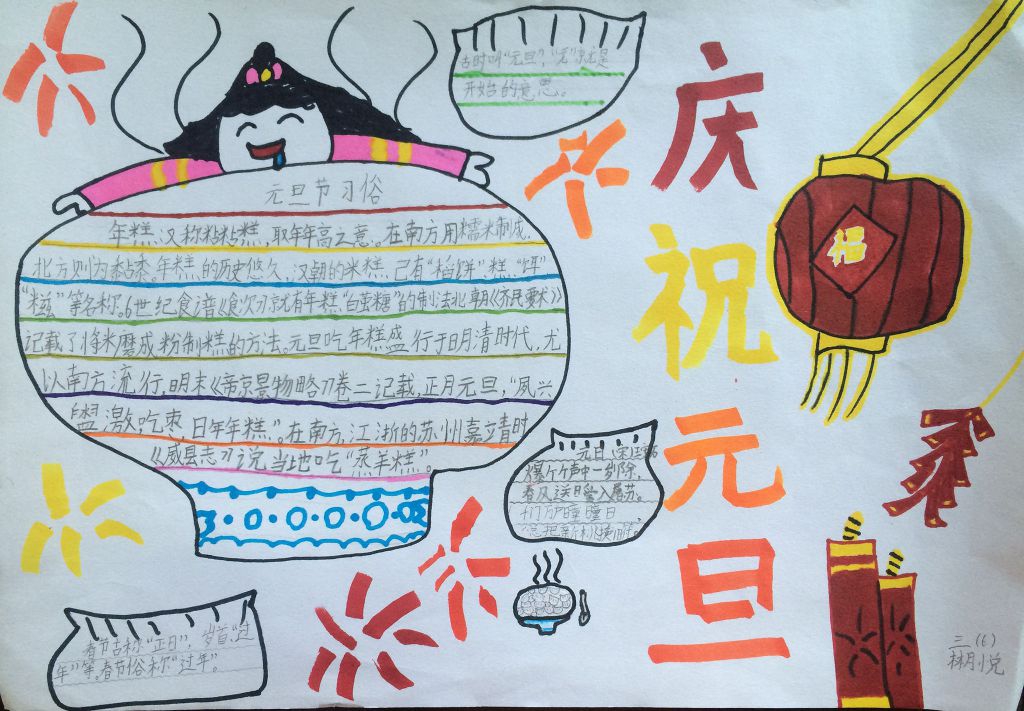 古时叫"元旦","元"就是
开始的意思。
庆祝元旦
福
元旦节习俗
年糕,又称粘粘糕,取年年高之意。在南方用糯米制成,
北方则为黏黍。年糕的历史悠久,汉朝的米糕已有"稻饼""糕""饵"
"糍"等名称。6世纪食谱《食次》就有年糕"白茧糖"的制法北朝《齐民要术》
记载了将米磨成粉制糕的方法。元旦吃年糕盛行于明清时代,尤
以南方流行,明末《帝京景物略》卷二记载,正月元旦,"夙兴
盥漱吃枣,日年年糕。"在南方,江浙的苏州嘉立青时
《威县志》说当地吃"蒸羊糕"。
元日
爆竹声中一岁除,
春风送日暖入屠苏。
瞳瞳日
总把新
春节古称"正日",岁首,"过
年"等。春节俗称"过年"。
三(6)
林刖悦